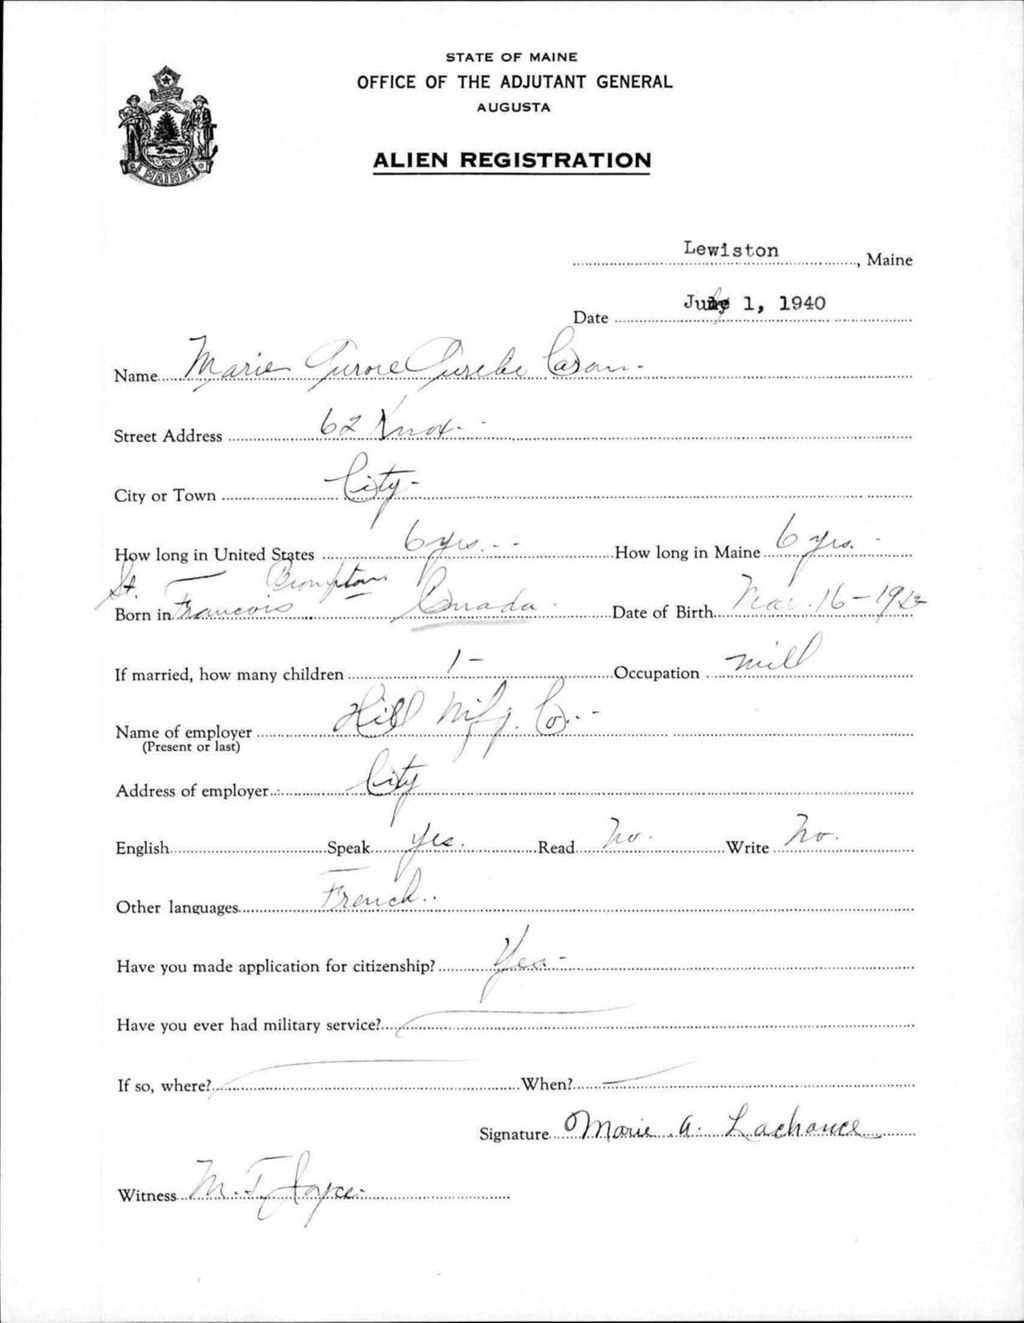 STATE OF MAINE
OFFICE OF THE ADJUTANT GENERAL
AUGUSTA
MAINE
ALIEN REGISTRATION
Lewiston, Maine
Date July 1, 1940
Name Marie
Street Address 62 Knox
City or Town City
How long in United States 6 yrs. How long in Maine 6 yrs.
St. Francois Brompton
Born in Canada Date of Birth Mar. 16 -
If married, how many children 1 Occupation mill
Name of employer Hill Mfg. Co.
(Present or last)
Address of employer City
English Speak Yes. Read No. Write No.
Other languages French
Have you made application for citizenship? Yes
Have you ever had military service?
If so, where? When?
Signature Marie A. Lachance
Witness M. T. Joyce